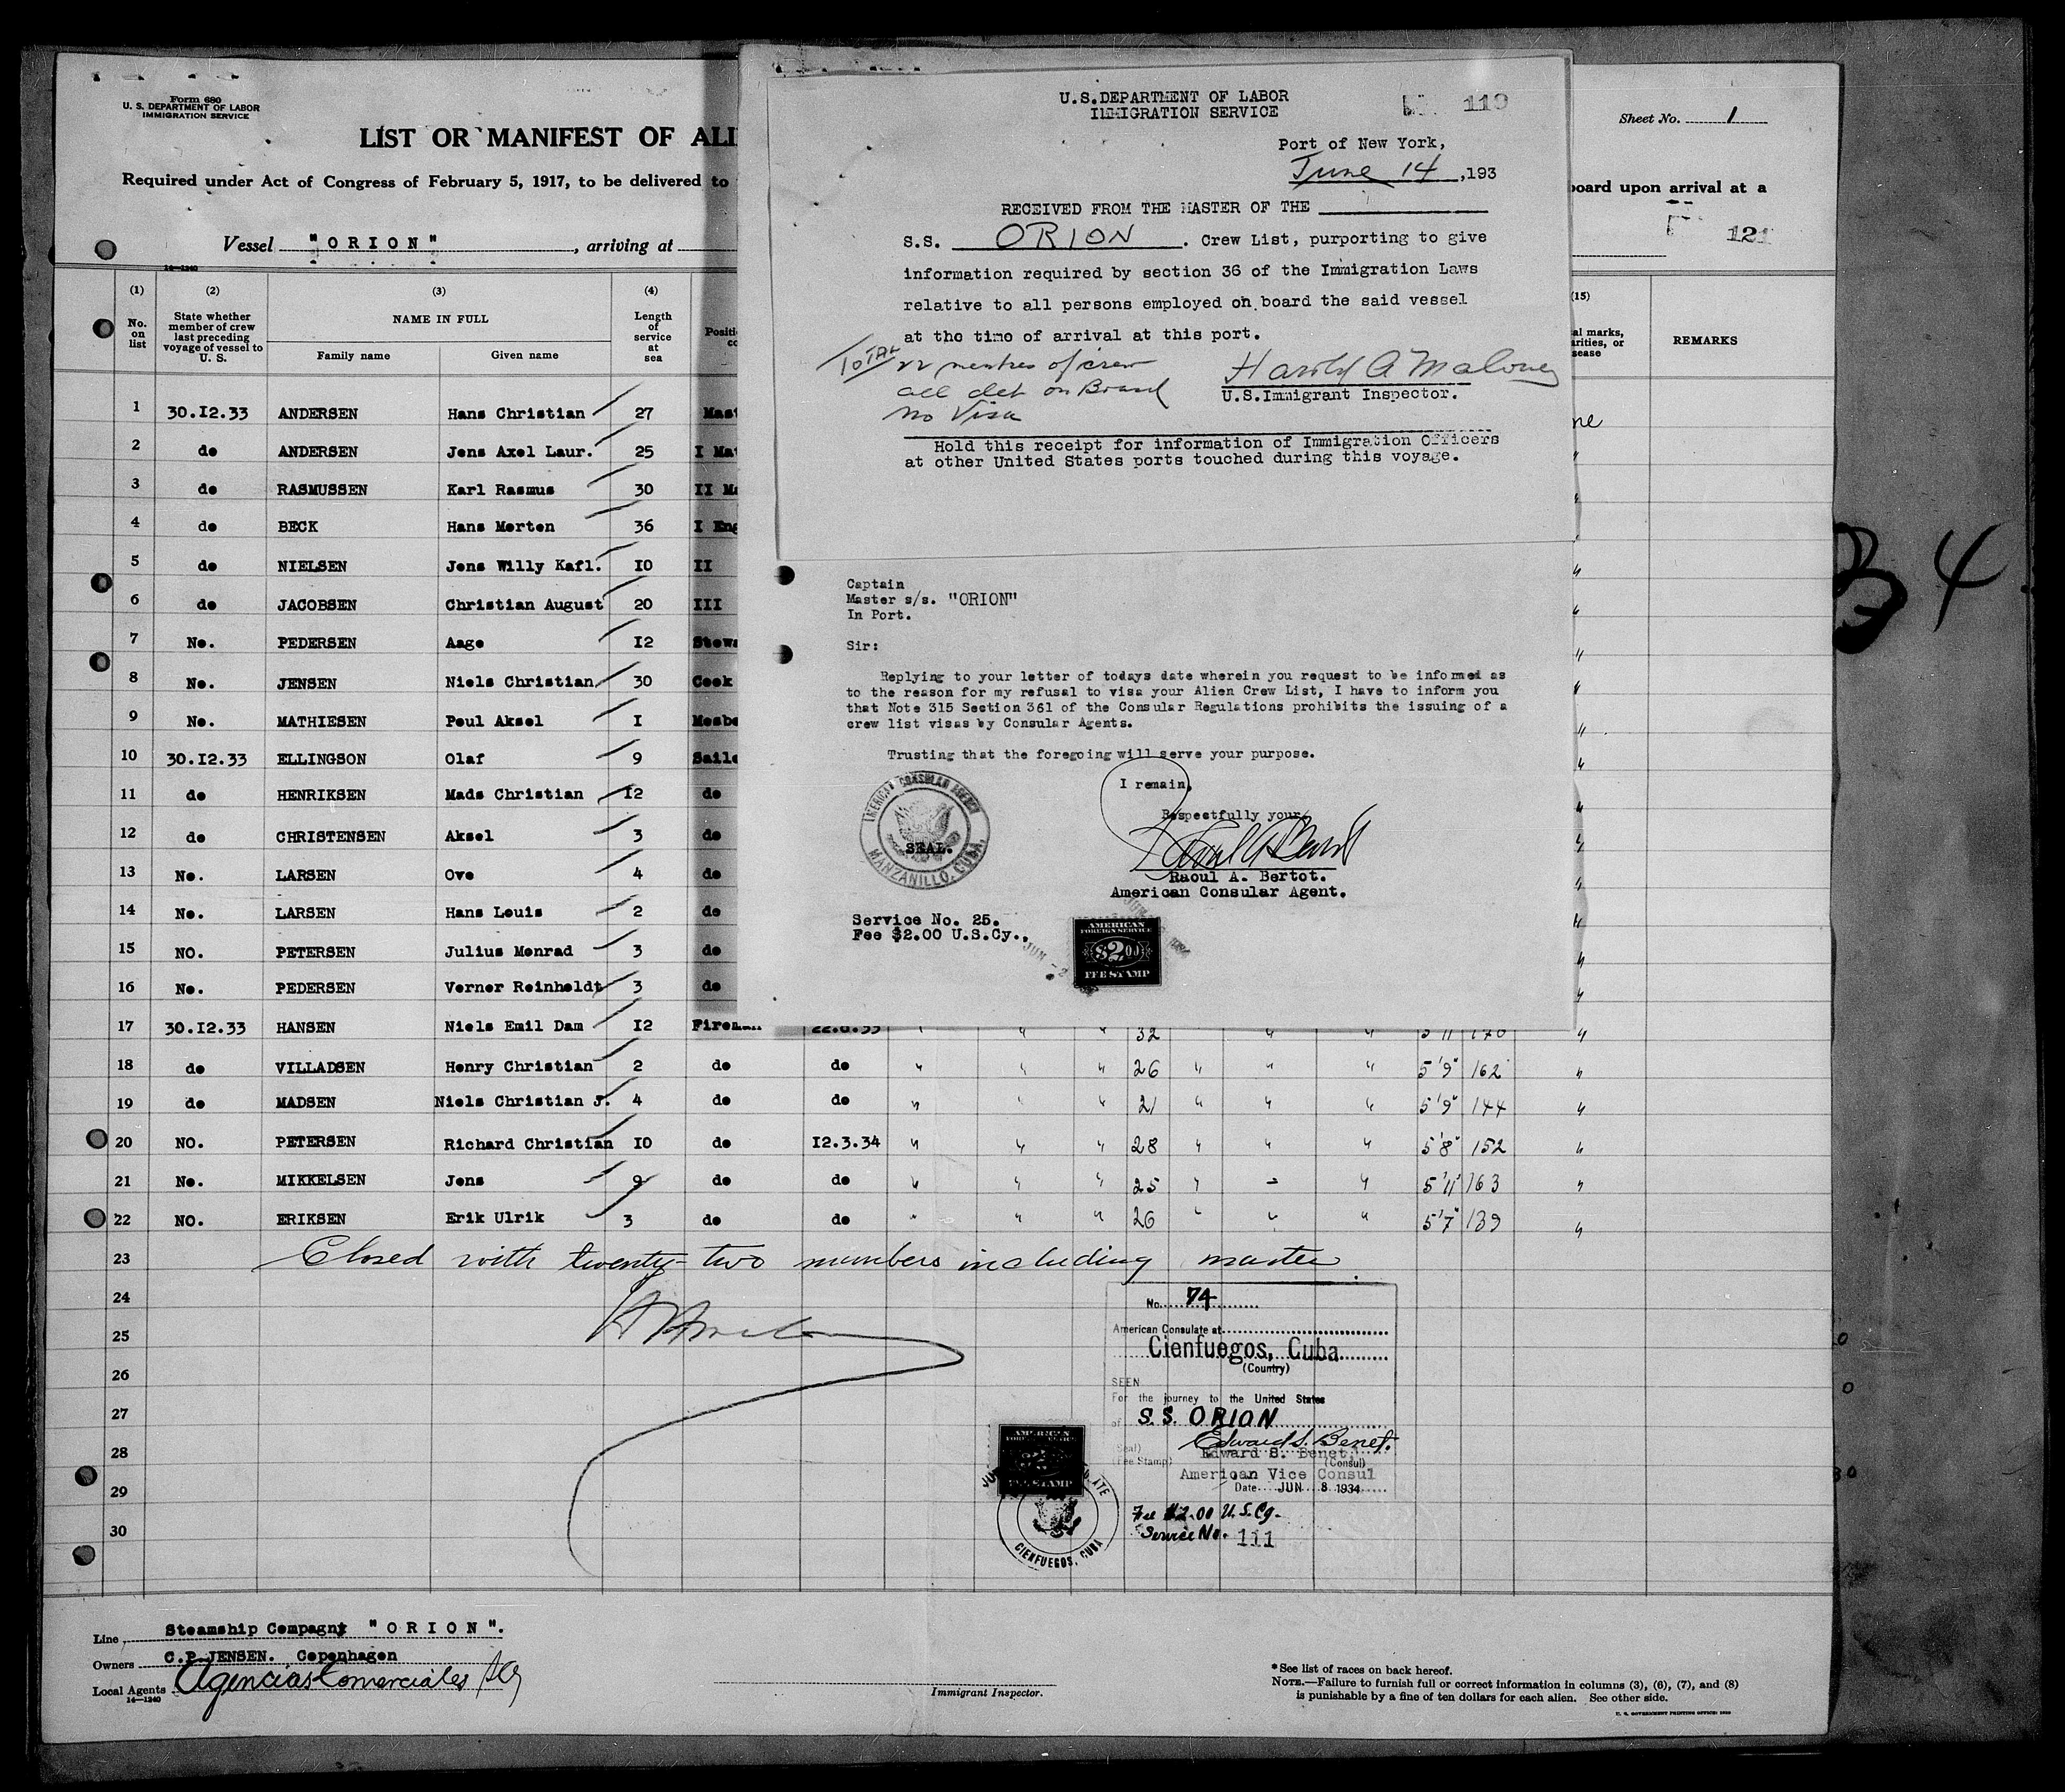 Form 680
U. S. DEPARTMENT OF LABOR
IMMIGRATION SERVICE
LIST OR MANIFEST OF ALI
Required under Act of Congress of February 5, 1917, to be delivered to
Vessel "ORION", arriving at
14—1240
Sheet No. 1
board upon arrival at a
121
(1) (2) (3) (4) (15)
No. on list
State whether member of crew last preceding voyage of vessel to U. S.
NAME IN FULL
Family name Given name
Length of service at sea
REMARKS
1 30.I2.33 ANDERSEN Hans Christian 27 Mast
2 do ANDERSEN Jens Axel Laur. 25 I Mat
3 do RASMUSSEN Karl Rasmus 30 II Ma
4 do BECK Hans Morten 36 I Eng
5 do NIELSEN Jens Willy Kafl. I0 II
6 do JACOBSEN Christian August 20 III
7 No. PEDERSEN Aage I2 Stewa
8 No. JENSEN Niels Christian 30 Cook
9 No. MATHIESEN Poul Aksel I Mesbo
10 30.I2.33 ELLINGSON Olaf 9 Sailo
11 do HENRIKSEN Mads Christian I2 do
12 do CHRISTENSEN Aksel 3 do
13 No. LARSEN Ove 4 do
14 No. LARSEN Hans Louis 2 do
15 NO. PETERSEN Julius Monrad 3 do
16 No. PEDERSEN Verner Reinholdt 3 do
17 30.I2.33 HANSEN Niels Emil Dam I2 Fireman 32 5'11 170
18 do VILLADSEN Henry Christian 2 do do " " " 26 " " " 5'9" 162 "
19 do MADSEN Niels Christian J. 4 do do " " " 21 " " " 5'9" 144 "
20 NO. PETERSEN Richard Christian I0 do I2.3.34 " " " 28 " " " 5'8" 152 "
21 No. MIKKELSEN Jens 9 do do " " " 25 " " " 5'11" 163 "
22 NO. ERIKSEN Erik Ulrik 3 do do " " " 26 " " " 5'7" 139 "
23 Closed with twenty-two members including master
24
25
26
27
28
29
30
U.S.DEPARTMENT OF LABOR
IMMIGRATION SERVICE
119
Port of New York,
June 14 ,193
RECEIVED FROM THE MASTER OF THE
S.S. ORION . Crew List, purporting to give
information required by section 36 of the Immigration Laws
relative to all persons employed on board the said vessel
at the time of arrival at this port.
Total 22 membres of crew
all det on Board
no Visa
Harold A Maloney
U.S.Immigrant Inspector.
Hold this receipt for information of Immigration Officers
at other United States ports touched during this voyage.
Captain
Master s/s. "ORION"
In Port.
Sir:
Replying to your letter of todays date wherein you request to be informed as
to the reason for my refusal to visa your Alien Crew List, I have to inform you
that Note 315 Section 361 of the Consular Regulations prohibits the issuing of a
crew list visas by Consular Agents.
Trusting that the foregoing will serve your purpose.
I remain,
Respectfully yours
AMERICAN CONSULAR AGENCY
SEAL.
MANZANILLO, CUBA.
Raoul A. Bertot.
American Consular Agent.
Service No. 25.
Fee $2.00 U.S.Cy.,
JUN - 2
AMERICAN
FOREIGN SERVICE
$2.00
FEE STAMP
34
No. 74
American Consulate at
Cienfuegos, Cuba
(Country)
SEEN
For the journey to the United States
of S.S. ORION
(Seal)
(Fee Stamp)
Edward S. Benet.
Edward S. Benet,
(Consul)
American Vice Consul
Date JUN 8 1934
Fee $2.00 U.S.Cy.
Service No. 111
AMERICAN
FEE STAMP
CIENFUEGOS, CUBA
Line Steamship Compagny "ORION".
Owners C.P.JENSEN. Copenhagen
Local Agents Agencias Comerciales
14—1240
Immigrant Inspector.
*See list of races on back hereof.
NOTE.—Failure to furnish full or correct information in columns (3), (6), (7), and (8)
is punishable by a fine of ten dollars for each alien. See other side.